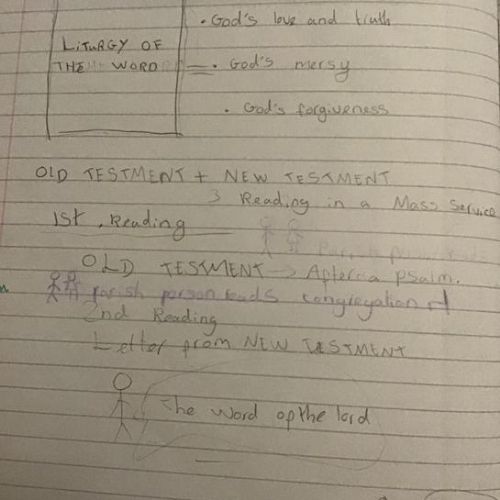 • God's love and truth
LITURGY OF
THE WORD = • God's mersy
• God's forgiveness
OLD TESTMENT + NEW TESTMENT
3 Reading in a Mass Service
1st Reading
OLD TESTMENT → After a psalm.
parish person reads congregation
2nd Reading
Letter from NEW TESTMENT
The word of the lord